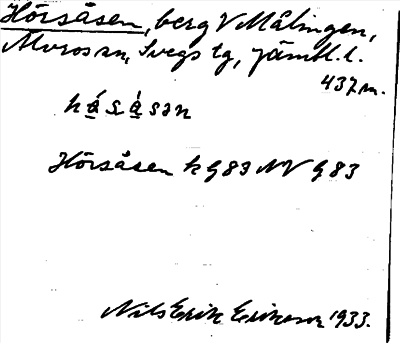 Hörsåsen, berg V Målingen,
Moros sn, Svegs tg, Jämtl. l.
437 m.
hásásən
Hörsåsen kg 83 NV g 83
Nils Erik Erikson 1933.